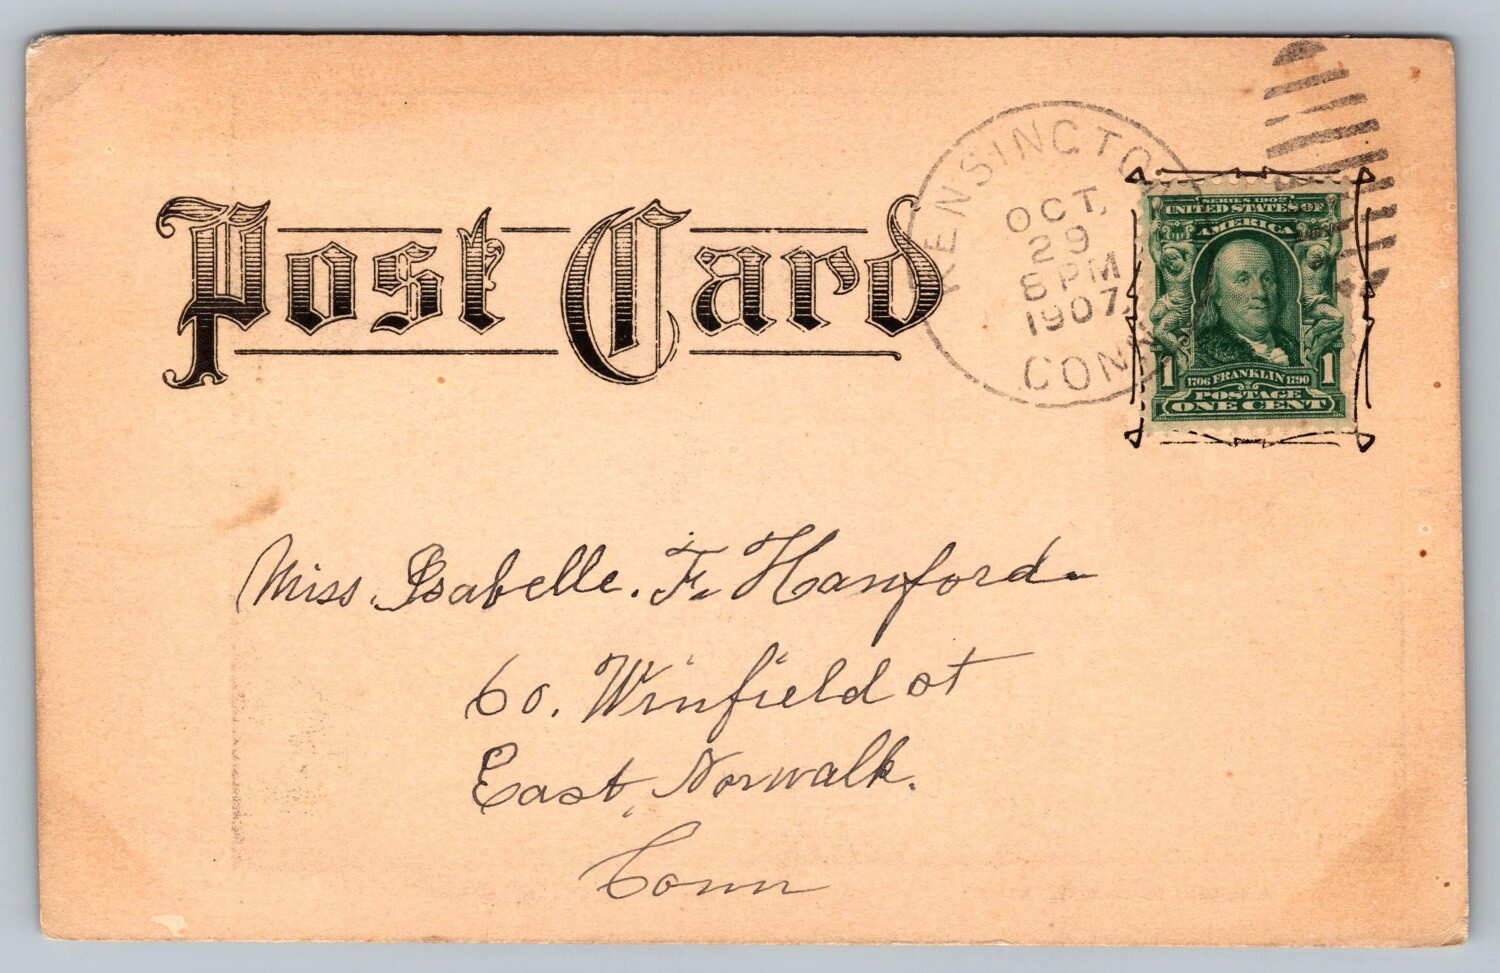 Post Card
KENSINGTON
OCT,
29
8 PM
1907,
CONN
SERIES 1902
UNITED STATES OF
AMERICA
1 1706 FRANKLIN 1790 1
POSTAGE
ONE CENT
Miss. Isabelle. F. Hanford
60. Winfield st
East Norwalk.
Conn